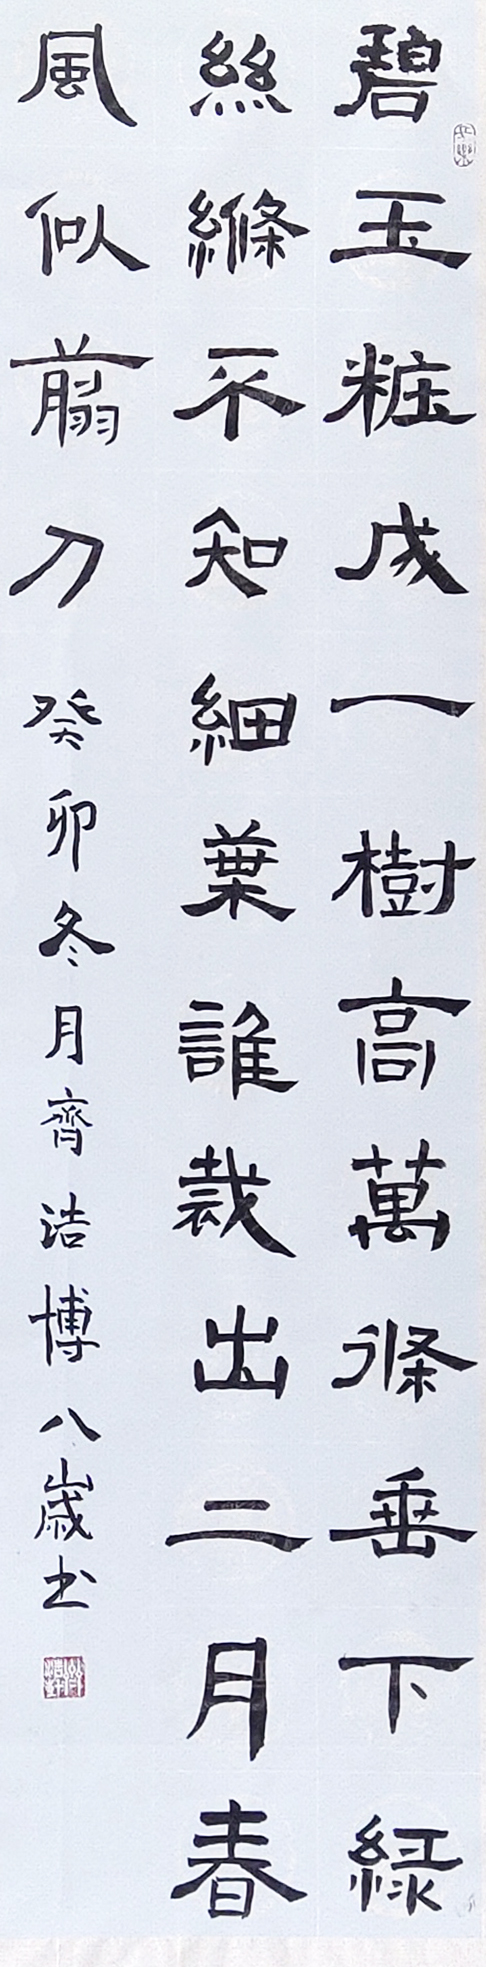 碧玉粧成一樹高萬條垂下緑
絲縧不知細葉誰裁出二月春
風似翦刀
癸卯冬月齊浩博八歲书